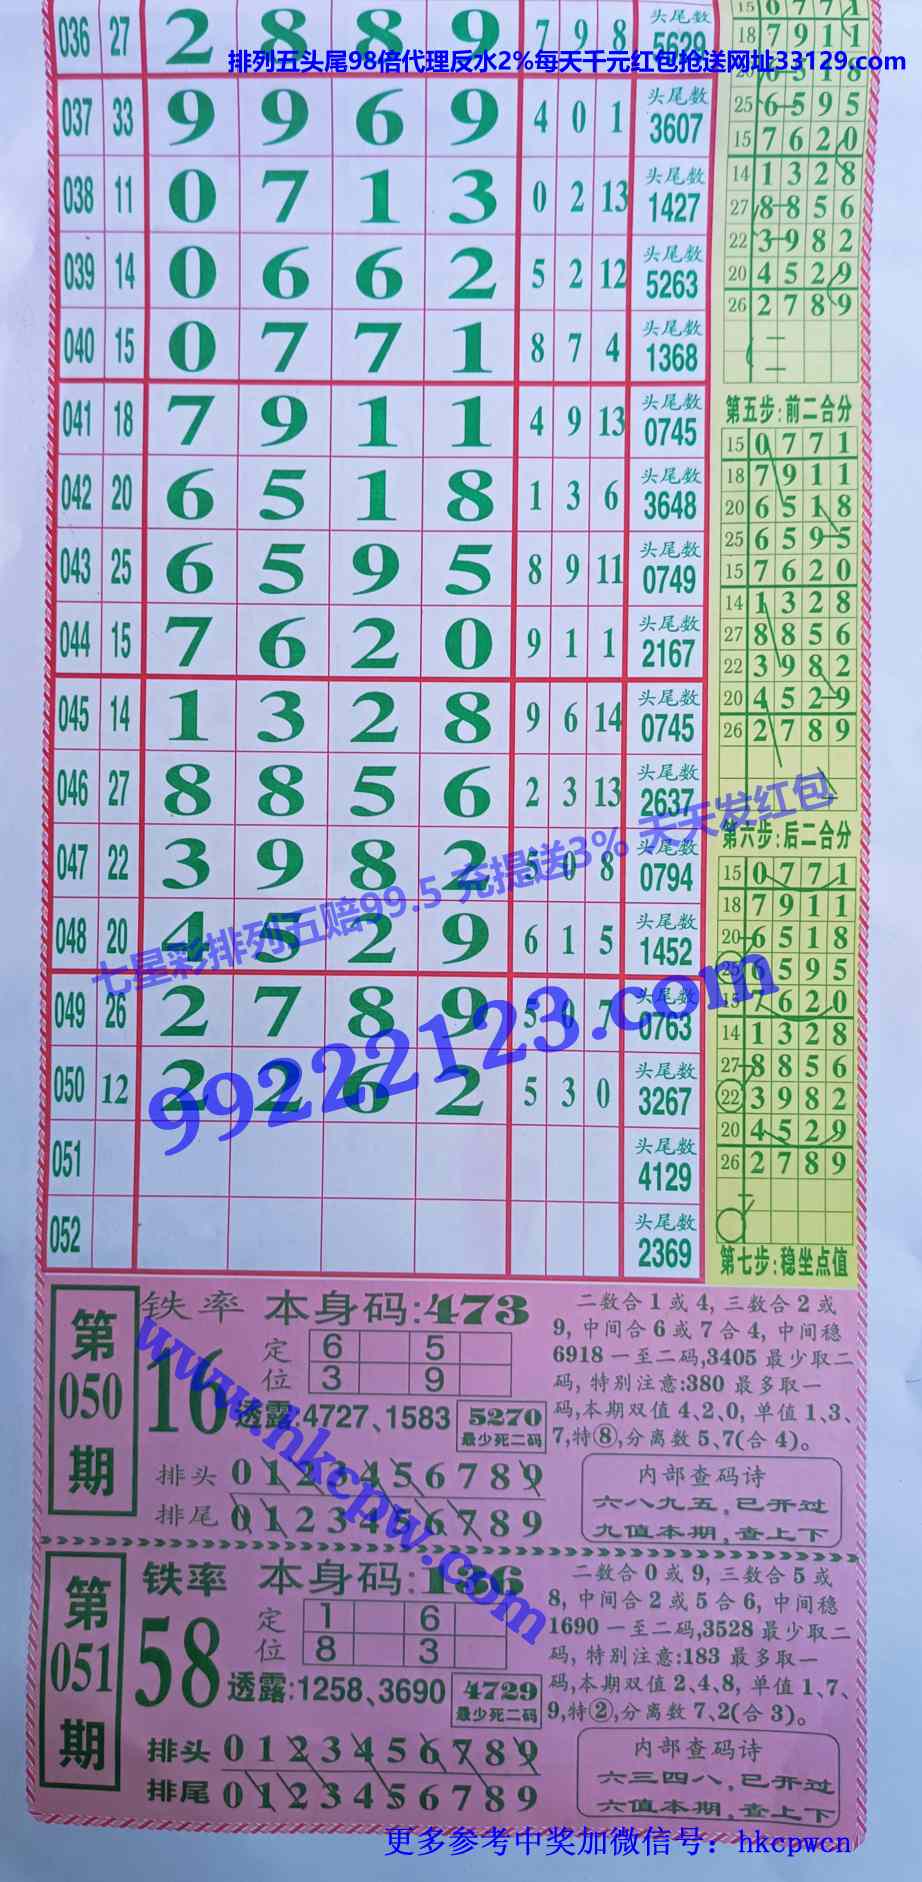 036 27 2 8 8 9 7 9 8 头尾数 5629
排列五头尾98倍代理反水2%每天千元红包抢送网址33129.com
037 33 9 9 6 9 4 0 1 头尾数 3607
038 11 0 7 1 3 0 2 13 头尾数 1427
039 14 0 6 6 2 5 2 12 头尾数 5263
040 15 0 7 7 1 8 7 4 头尾数 1368
041 18 7 9 1 1 4 9 13 头尾数 0745
042 20 6 5 1 8 1 3 6 头尾数 3648
043 25 6 5 9 5 8 9 11 头尾数 0749
044 15 7 6 2 0 9 1 1 头尾数 2167
045 14 1 3 2 8 9 6 14 头尾数 0745
046 27 8 8 5 6 2 3 13 头尾数 2637
047 22 3 9 8 2 5 0 8 头尾数 0794
048 20 4 5 2 9 6 1 5 头尾数 1452
049 26 2 7 8 9 5 0 7 头尾数 0763
050 12 2 2 6 2 5 3 0 头尾数 3267
051 头尾数 4129
052 头尾数 2369
15 0 7 7 1
18 7 9 1 1
20 6 5 1 8
25 6 5 9 5
15 7 6 2 0
14 1 3 2 8
27 8 8 5 6
22 3 9 8 2
20 4 5 2 9
26 2 7 8 9
第五步:前二合分
15 0 7 7 1
18 7 9 1 1
20 6 5 1 8
25 6 5 9 5
15 7 6 2 0
14 1 3 2 8
27 8 8 5 6
22 3 9 8 2
20 4 5 2 9
26 2 7 8 9
第六步:后二合分
15 0 7 7 1
18 7 9 1 1
20 6 5 1 8
25 6 5 9 5
15 7 6 2 0
14 1 3 2 8
27 8 8 5 6
22 3 9 8 2
20 4 5 2 9
26 2 7 8 9
第七步:稳坐点值
七星彩排列五赔99.5 充提送3% 天天发红包
99222123.com
www.hkcpw.com
第050期
铁率 16
本身码:473
定位 6 5
3 9
透露:4727、1583
5270
最少死二码
排头 0 1 2 3 4 5 6 7 8 9
排尾 0 1 2 3 4 5 6 7 8 9
二数合1或4,三数合2或
9,中间合6或7合4,中间稳
6918一至二码,3405最少取二
码,特别注意:380最多取一
码,本期双值4、2、0,单值1、3、
7,特⑧,分离数5、7(合4)。
内部查码诗
六八九五,已开过
九值本期,查上下
第051期
铁率 58
本身码:136
定位 1 6
8 3
透露:1258、3690
4729
最少死二码
排头 0 1 2 3 4 5 6 7 8 9
排尾 0 1 2 3 4 5 6 7 8 9
二数合0或9,三数合5或
8,中间合2或5合6,中间稳
1690一至二码,3528最少取二
码,特别注意:183最多取一
码,本期双值2、4、8,单值1、7、
9,特②,分离数7、2(合3)。
内部查码诗
六三四八,已开过
六值本期,查上下
更多参考中奖加微信号：hkcpwcn